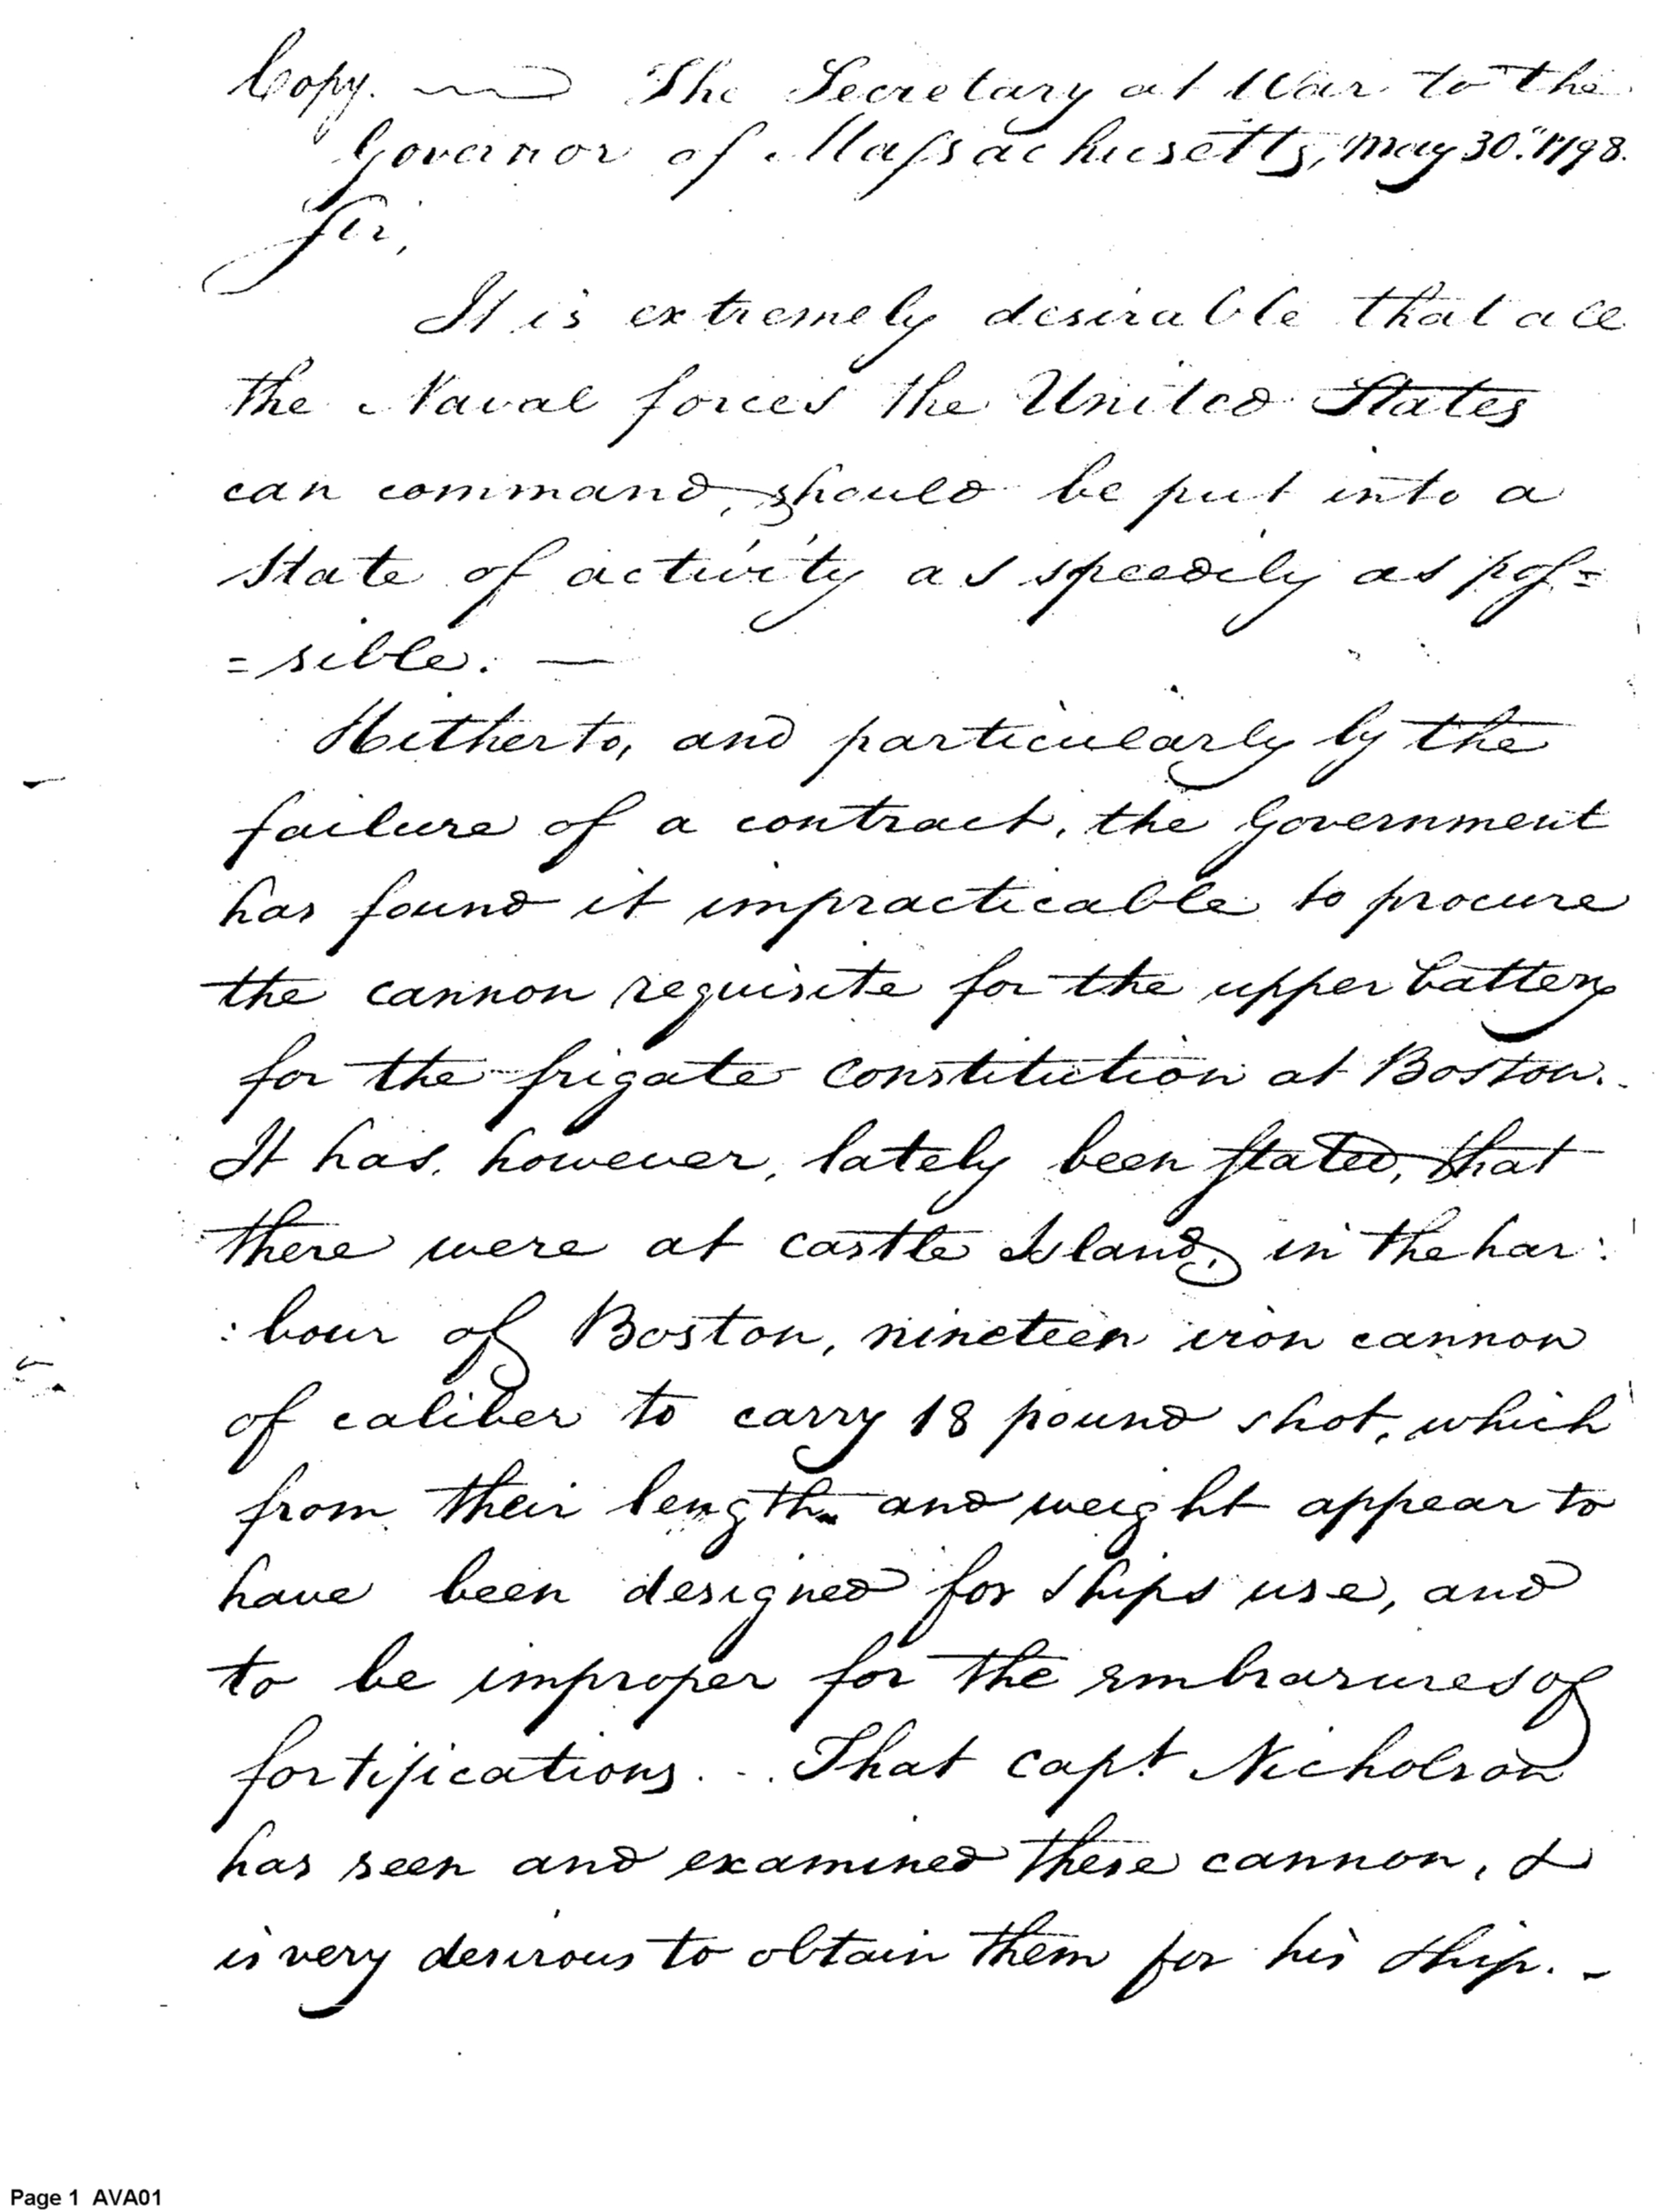 Copy. — The Secretary at War to the
Governor of Maſsachusetts, May 30." 1798.
Sir,
It is extremely desirable that all
the Naval forces the United States
can command, should be put into a
State of activity as speedily as poſ=
=sible. —
Hitherto, and particularly by the
failure of a contract, the Government
has found it impracticable to procure
the cannon requisite for the upper battery
for the frigate Constitution at Boston.
It has, however, lately been stated, that
there were at castle Island, in the har:
:bour of Boston, nineteen iron cannon
of caliber to carry 18 pound shot, which
from their length and weight appear to
have been designed for ships use, and
to be improper for the embrasures of
fortifications. . . That capt Nicholson
has seen and examined these cannon, &
is very desirous to obtain them for his ship. –
Page 1 AVA01